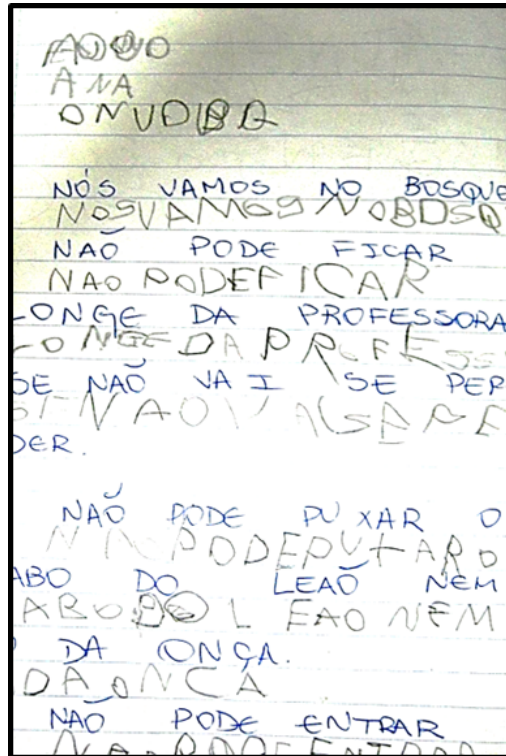 ANA
ONUDIBO
NÓS VAMOS NO BOSQUE
NOSVAMOSNOBOSQ
NAÕ PODE FICAR
NAO PODEFICAR
LONGE DA PROFESSORA
LONGEDAPROFESS
SE NAÕ VAI SE PER
SENAOVAISEPE
DER.
NAÕ PODE PUXAR O
PODEPUXARO
ABO DO LEAÕ NEM
ABODO LEAO NEM
DA ONÇA.
DA ONCA
NAÕ PODE ENTRAR
NAOPODEENTRAR